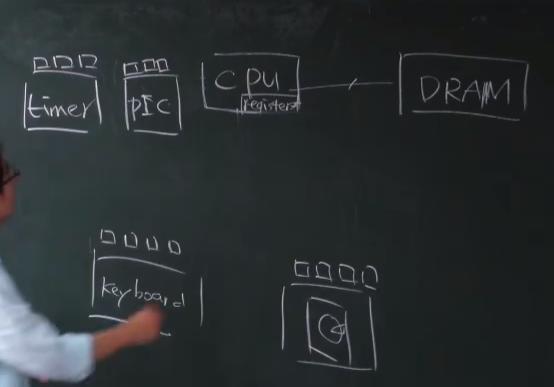 timer
PIC
CPU
registers
DRAM
keyboard